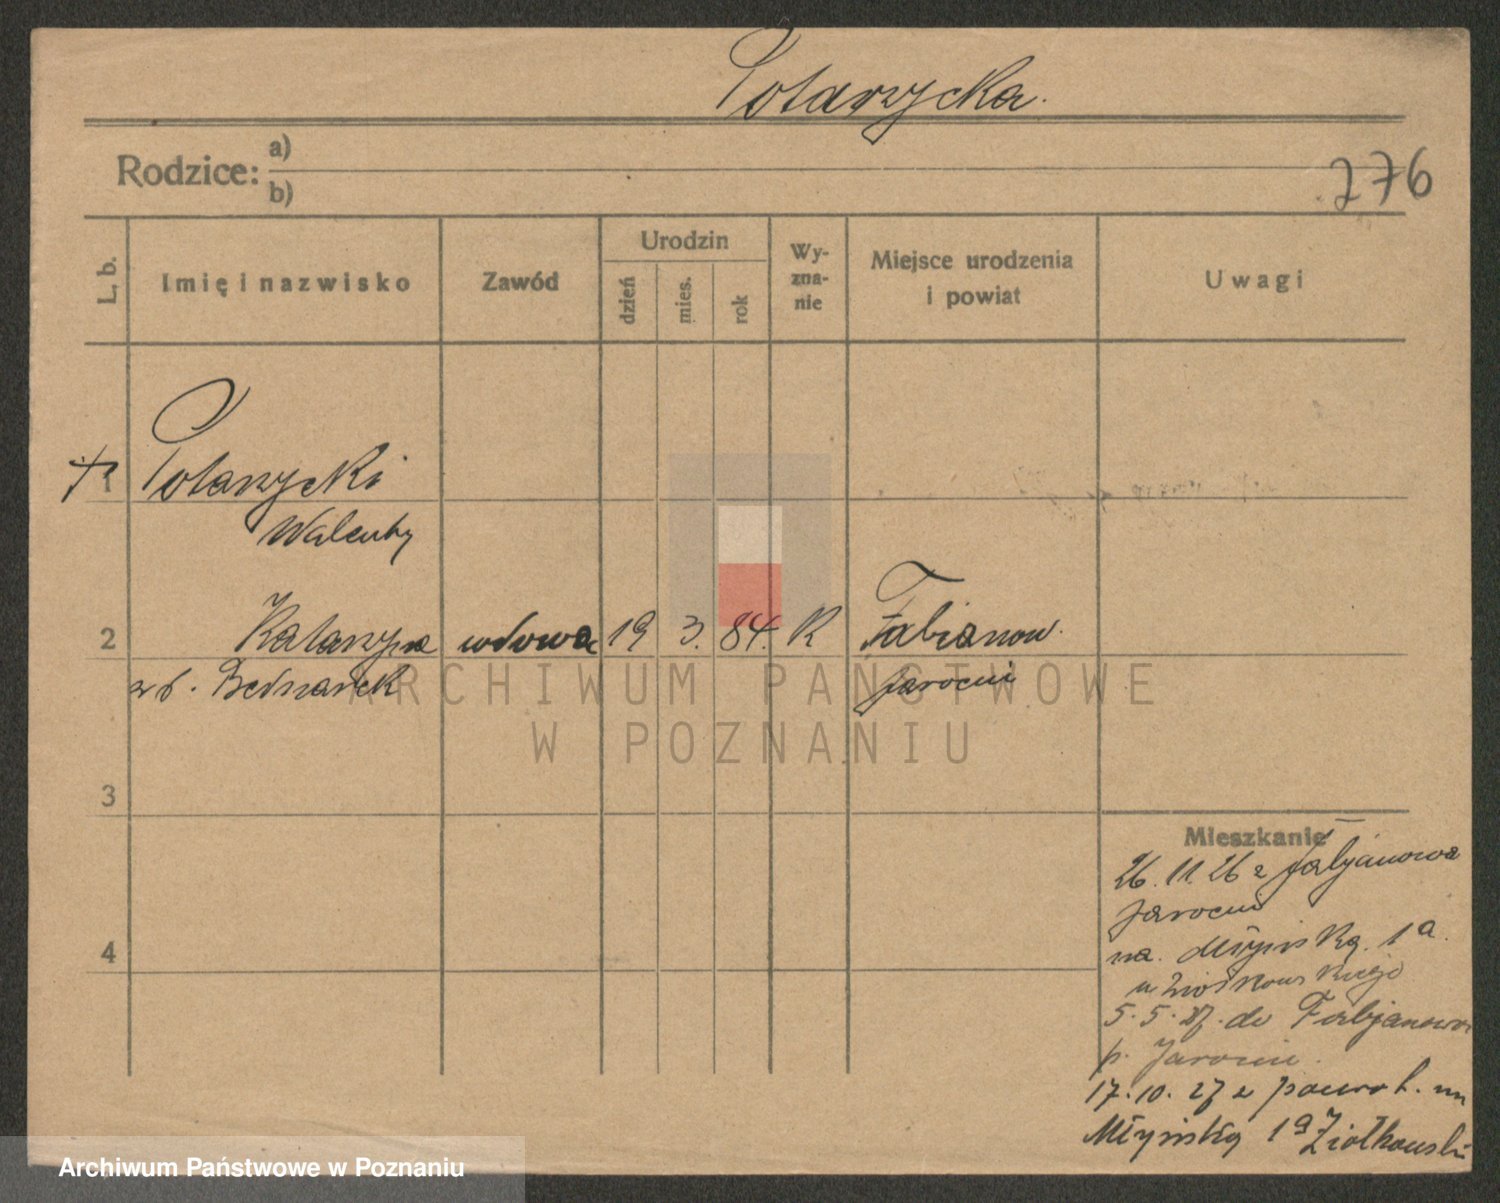 Potarzycka.
Rodzice: a)
b)
276
L. b.
Imię i nazwisko
Zawód
Urodzin
dzień
mies.
rok
Wy-
zna-
nie
Miejsce urodzenia
i powiat
Uwagi
† 1 Potarzycki
Walenty
2 Katarzyna wdowa 19 3. 84. K Fabianow.
z d. Bednarek Jarocin
3
4
Mieszkanie
26. 11. 26 z Fabjanowa
Jarocin
na. Młyńską. 1a.
u Ziołkowskiego
5. 5. 27. do Fabjanowa
p. Jarocin.
17. 10. 27 z powrot. na
Młyńską 1a Ziołkowski
ARCHIWUM PAŃSTWOWE
W POZNANIU
Archiwum Państwowe w Poznaniu